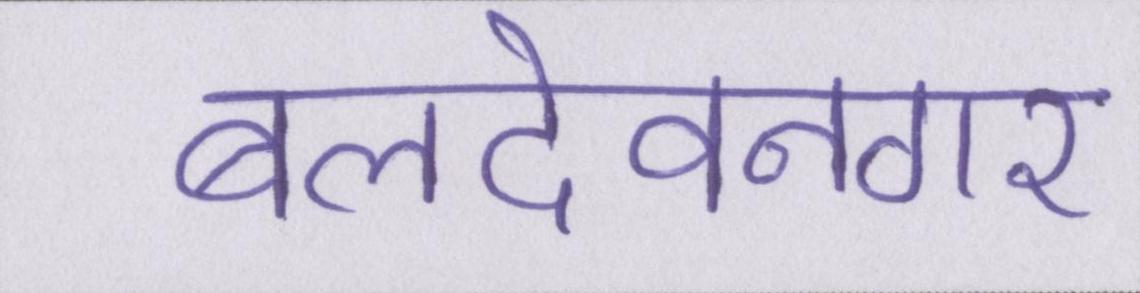 बलदेवनगर